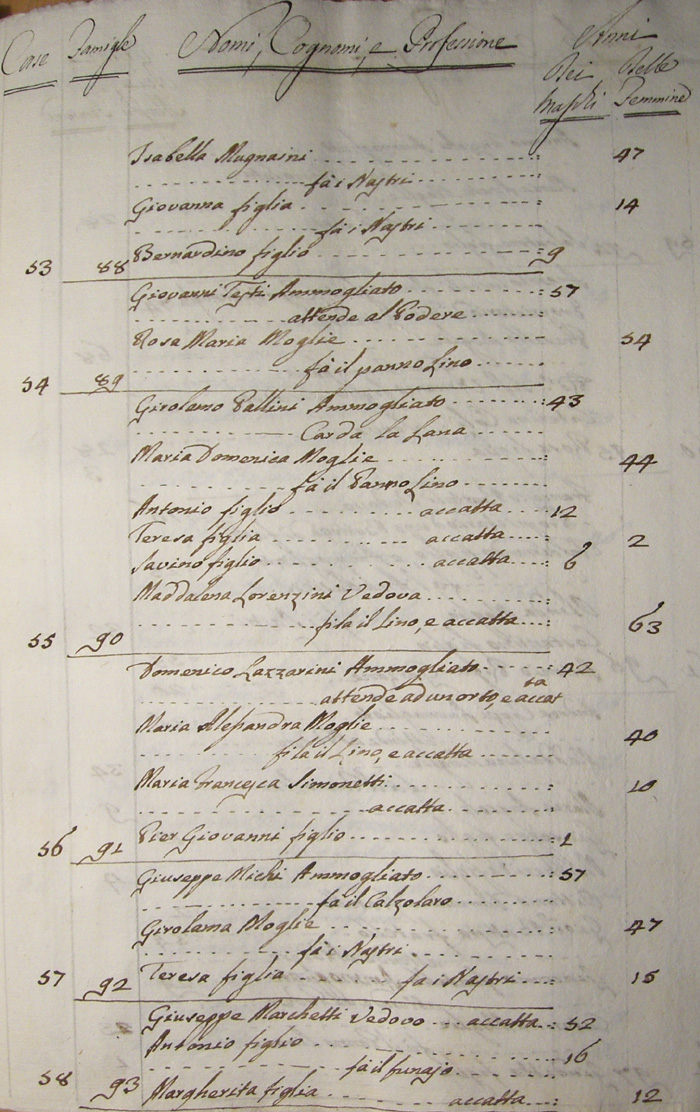 Case Famiglie Nomi, Cognomi, e Professione Anni
Dei Delle
Maschi Femmine
Isabella Mugnaini 47
fà i Nastri
Giovanna figlia 14
fà i Nastri
53 88 Bernardino figlio 9
Giovanni Testi Ammogliato 57
attende al Podere
Rosa Maria Moglie 54
54 89 fà il panno Lino
Girolamo Pallini Ammogliato 43
Carda la Lana
Maria Domenica Moglie 44
fà il Panno Lino
Antonio figlio accatta 12
Teresa figlia accatta 2
Savino figlio accatta 6
Maddalena Lorenzini Vedova
fila il Lino, e accatta 63
55 90
Domenico Lazzarini Ammogliato 42
attende ad un orto e accatta
Maria Alessandra Moglie 40
fila il Lino, e accatta
Maria Francesca Simonetti 10
accatta
56 91 Pier Giovanni figlio 1
Giuseppe Michi Ammogliato 57
fà il Calzolaro
Girolama Moglie 47
fà i Nastri
57 92 Teresa figlia fa i Nastri 15
Giuseppe Marchetti Vedovo accatta 52
Antonio figlio 16
fà il funajo
58 93 Margherita figlia accatta 12